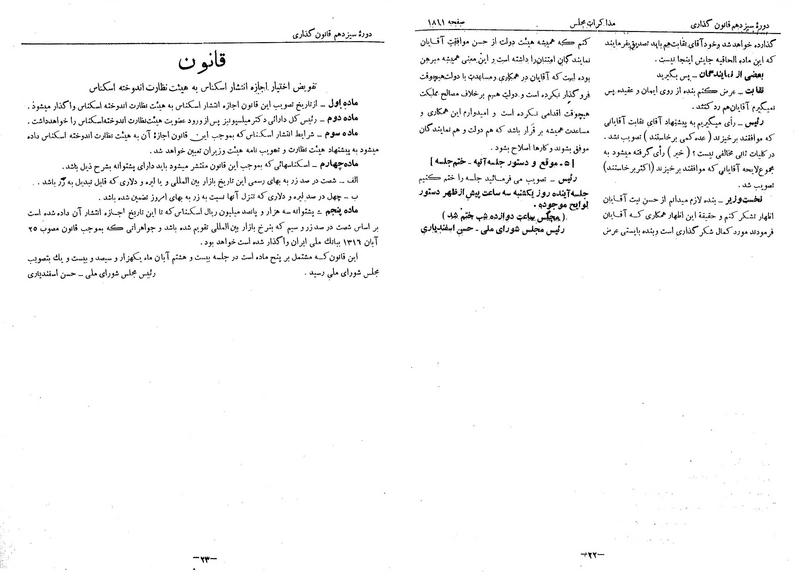 دورهٔ سیزدهم قانون گذاری
مذاکرات مجلس
صفحه ۱۸۶۱
گذارده خواهد شد و خود آقای نقابت هم باید تصدیق بفرمایند
که این ماده الحاقیه جایش اینجا نیست.
بعضی از نمایندگان ــ پس بگیرید
نقابت ــ عرض کنم بنده از روی ایمان و عقیده پس
نمیگیرم آقایان هم رد کنند.
رئیس ــ رأی میگیریم به پیشنهاد آقای نقابت آقایانی
که موافقند برخیزند (عده کمی برخاستند) تصویب نشد.
در کلیات ثانی مخالفی نیست؟ (خیر) رأی گرفته میشود به
مجموع لایحه آقایانی که موافقند برخیزند (اکثر برخاستند)
تصویب شد.
نخست‌وزیر ــ بنده لازم میدانم از حسن نیت آقایان
اظهار تشکر کنم و حقیقة این اظهار همکاری که آقایان
فرمودند مورد کمال شکر گذاری است و بنده بایستی عرض
کنم که همیشه هیئت دولت از حسن موافقت آقایان
نمایندگان امتنان را داشته است و این معنی همیشه مبرهن
بوده است که آقایان در همکاری و مساعدت با دولت هیچوقت
فرو گذار نکرده است و دولت هم بر خلاف مصالح مملکت
هیچوقت اقدامی نکرده است و امیدوارم این همکاری و
مساعدت همیشه بر قرار باشد که هم دولت و هم نمایندگان
موفق بشوند و کارها اصلاح بشود.
[۵ ــ موقع و دستور جلسه آتیه ــ ختم جلسه]
رئیس ــ تصویب می فرمائید جلسه را ختم کنیم
جلسه آینده روز یکشنبه سه ساعت پیش از ظهر دستور
لوایح موجوده.
(مجلس ساعت دوازده شب ختم شد)
رئیس مجلس شورای ملی ــ حسن اسفندیاری
ــ۲۲ــ
دورهٔ سیزدهم قانون گذاری
قانون
تفویض اختیار اجازه انتشار اسکناس به هیئت نظارت اندوخته اسکناس
ماده اول ــ از تاریخ تصویب این قانون اجازه انتشار اسکناس به هیئت نظارت اندوخته اسکناس واگذار میشود.
ماده دوم ــ رئیس کل دارائی دکتر میلسپو نیز پس از ورود عضویت هیئت نظارت اندوخته اسکناس را خواهد داشت.
ماده سوم ــ شرایط انتشار اسکناس که بموجب این قانون اجازهٔ آن به هیئت نظارت اندوخته اسکناس داده
میشود به پیشنهاد هیئت نظارت و تصویب نامه هیئت وزیران تعیین خواهد شد.
ماده چهارم ــ اسکناسهائی که بموجب این قانون منتشر میشود باید دارای پشتوانه بشرح ذیل باشد.
الف ــ شصت در صد زر به بهای رسمی این تاریخ بازار بین المللی و یا لیره و دلاری که قابل تبدیل به زر باشد.
ب ــ چهل در صد لیره و دلاری که تنزل آنها نسبت به زر به بهای امروز تضمین شده باشد.
ماده پنجم ــ پشتوانه سه هزار و پانصد میلیون ریال اسکناس که تا این تاریخ اجازه انتشار آن داده شده است
بر اساس شصت در صد زر و سیم که بنرخ بازار بین المللی تقویم شده باشد و جواهراتی که بموجب قانون مصوب ۲۵
آبان ۱۳۱۶ ببانک ملی ایران واگذار شده است خواهد بود.
این قانون که مشتمل بر پنج ماده است در جلسه بیست و هشتم آبان ماه یکهزار و سیصد و بیست و یک بتصویب
مجلس شورای ملی رسید.
رئیس مجلس شورای ملی ــ حسن اسفندیاری
ــ۲۳ــ